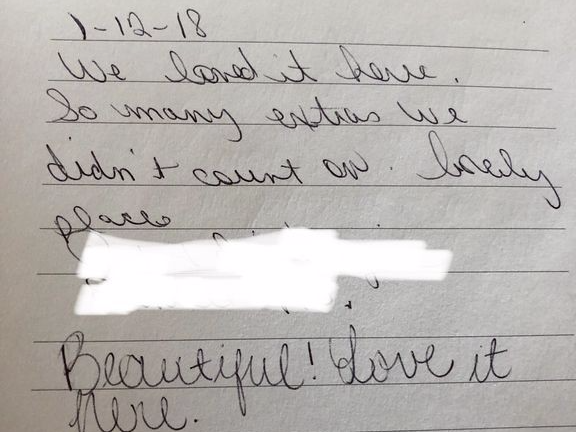 1-12-18
We loved it here.
So many extras we
didn't count on. lovely
place
Beautiful! Love it
here.